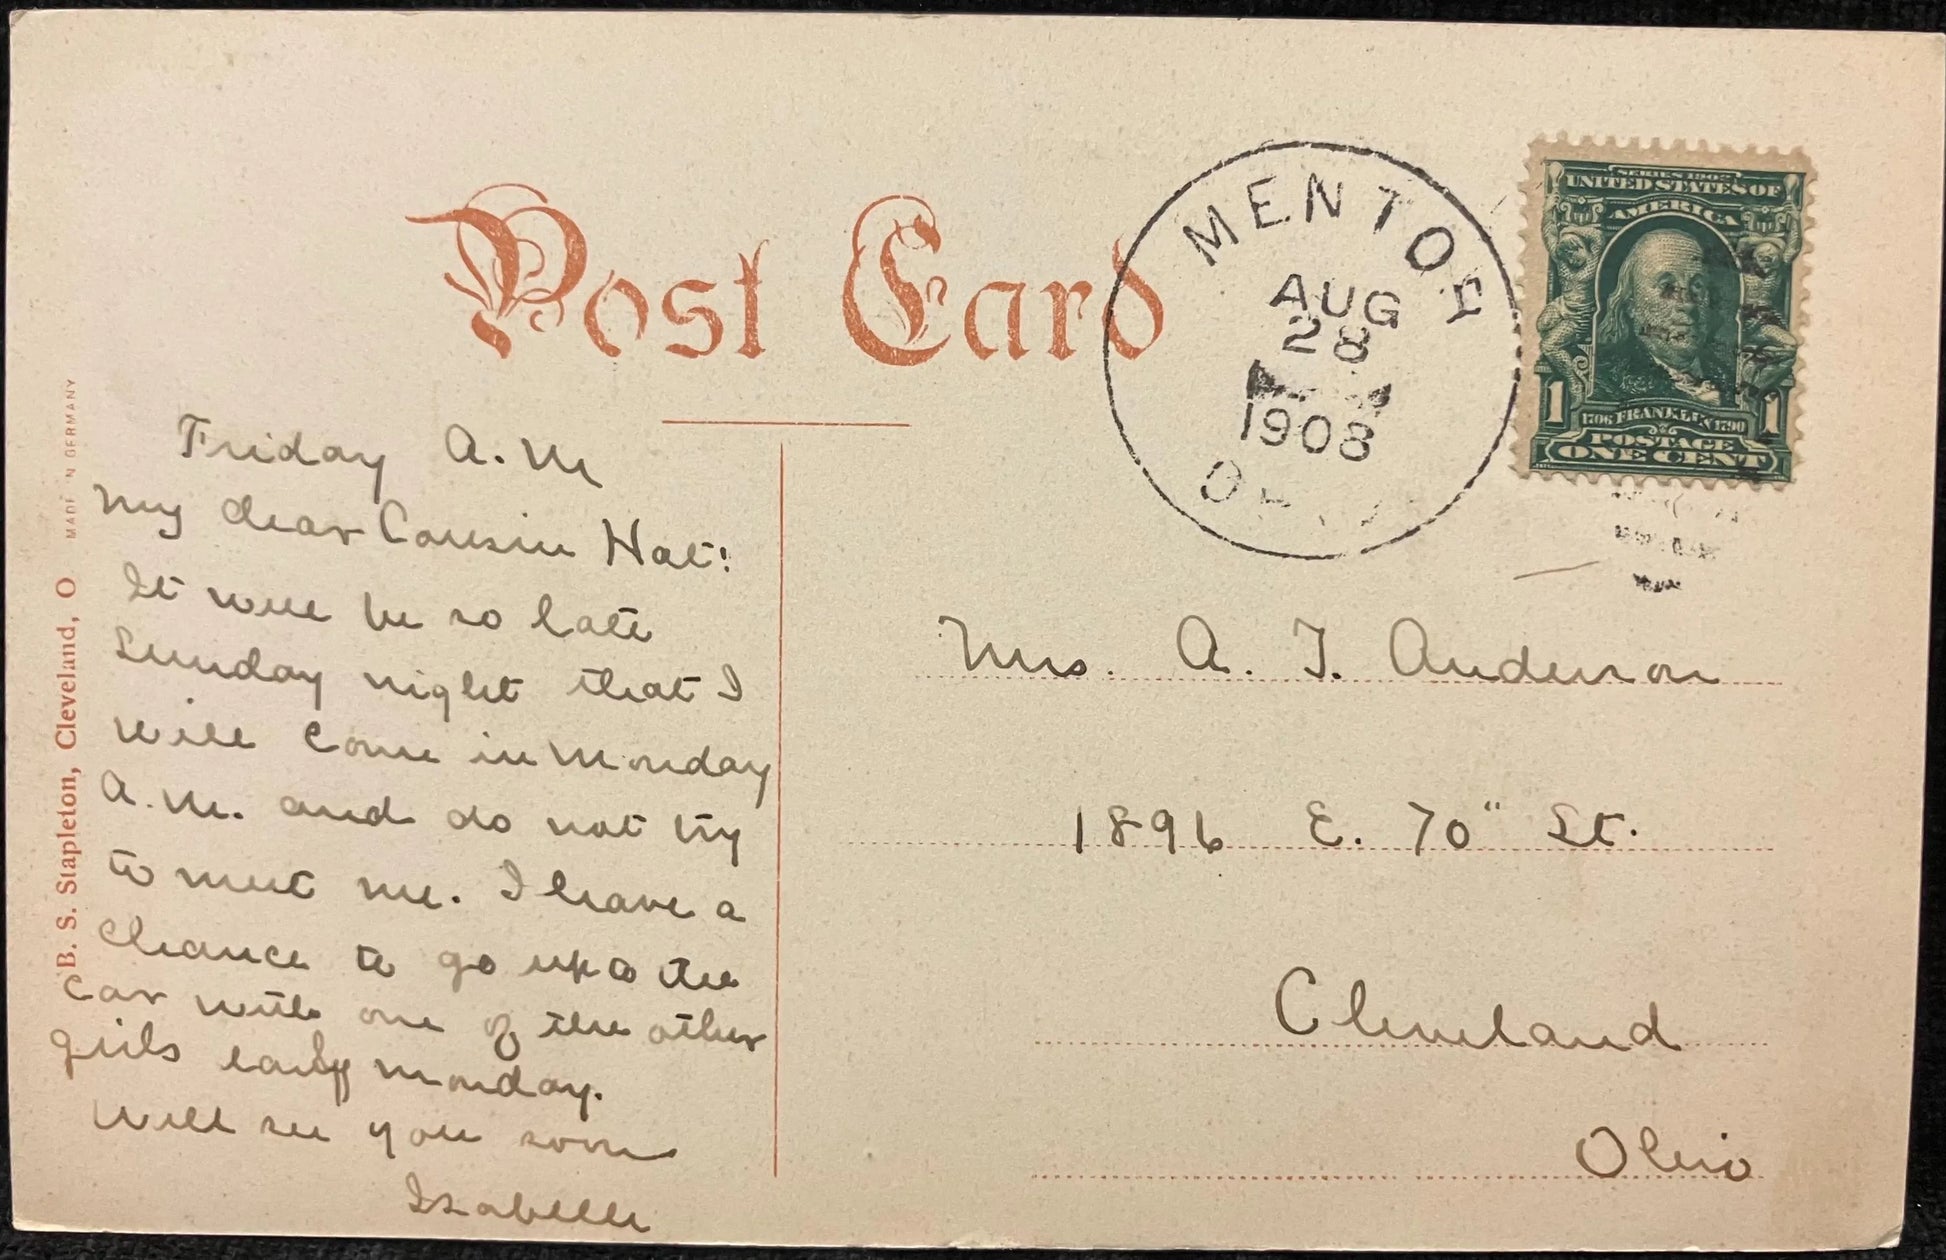 Post Card
MENTOR
AUG
28
1908
SERIES 1902
UNITED STATES OF
AMERICA
1706 FRANKLIN 1790
1 1
POSTAGE
ONE CENT
B. S. Stapleton, Cleveland, O MADE IN GERMANY
Friday A.M
My dear Cousin Hat:
It will be so late
Sunday night that I
will come in Monday
A.M. and do not try
to meet me. I have a
chance to go up to the
car with one of the other
girls early Monday.
Will see you soon
Isabelle
Mrs. A. T. Anderson
1896 E. 70" St.
Cleveland
Ohio